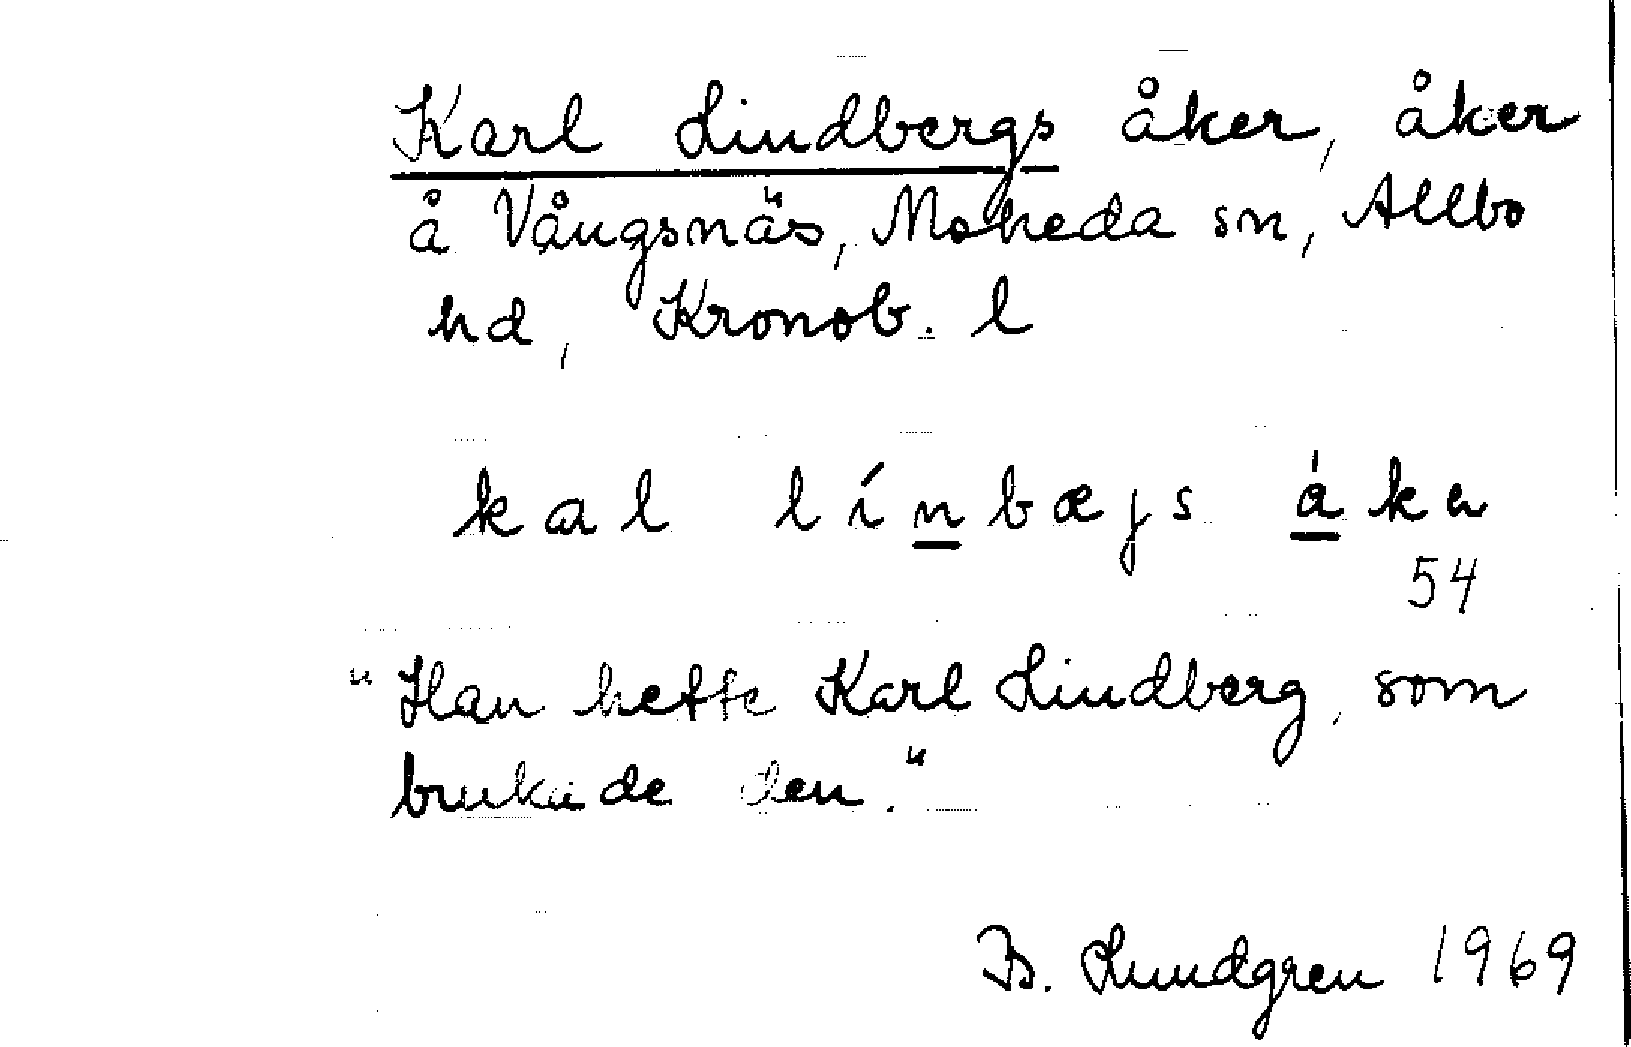 Karl Lindbergs åker, åker
å Vångsnäs, Moheda sn, Allbo
hd, Kronob. l
kal línbæjs ákɐ
54
"Han hette Karl Lindberg, som
brukade den."
B. Lundgren 1969